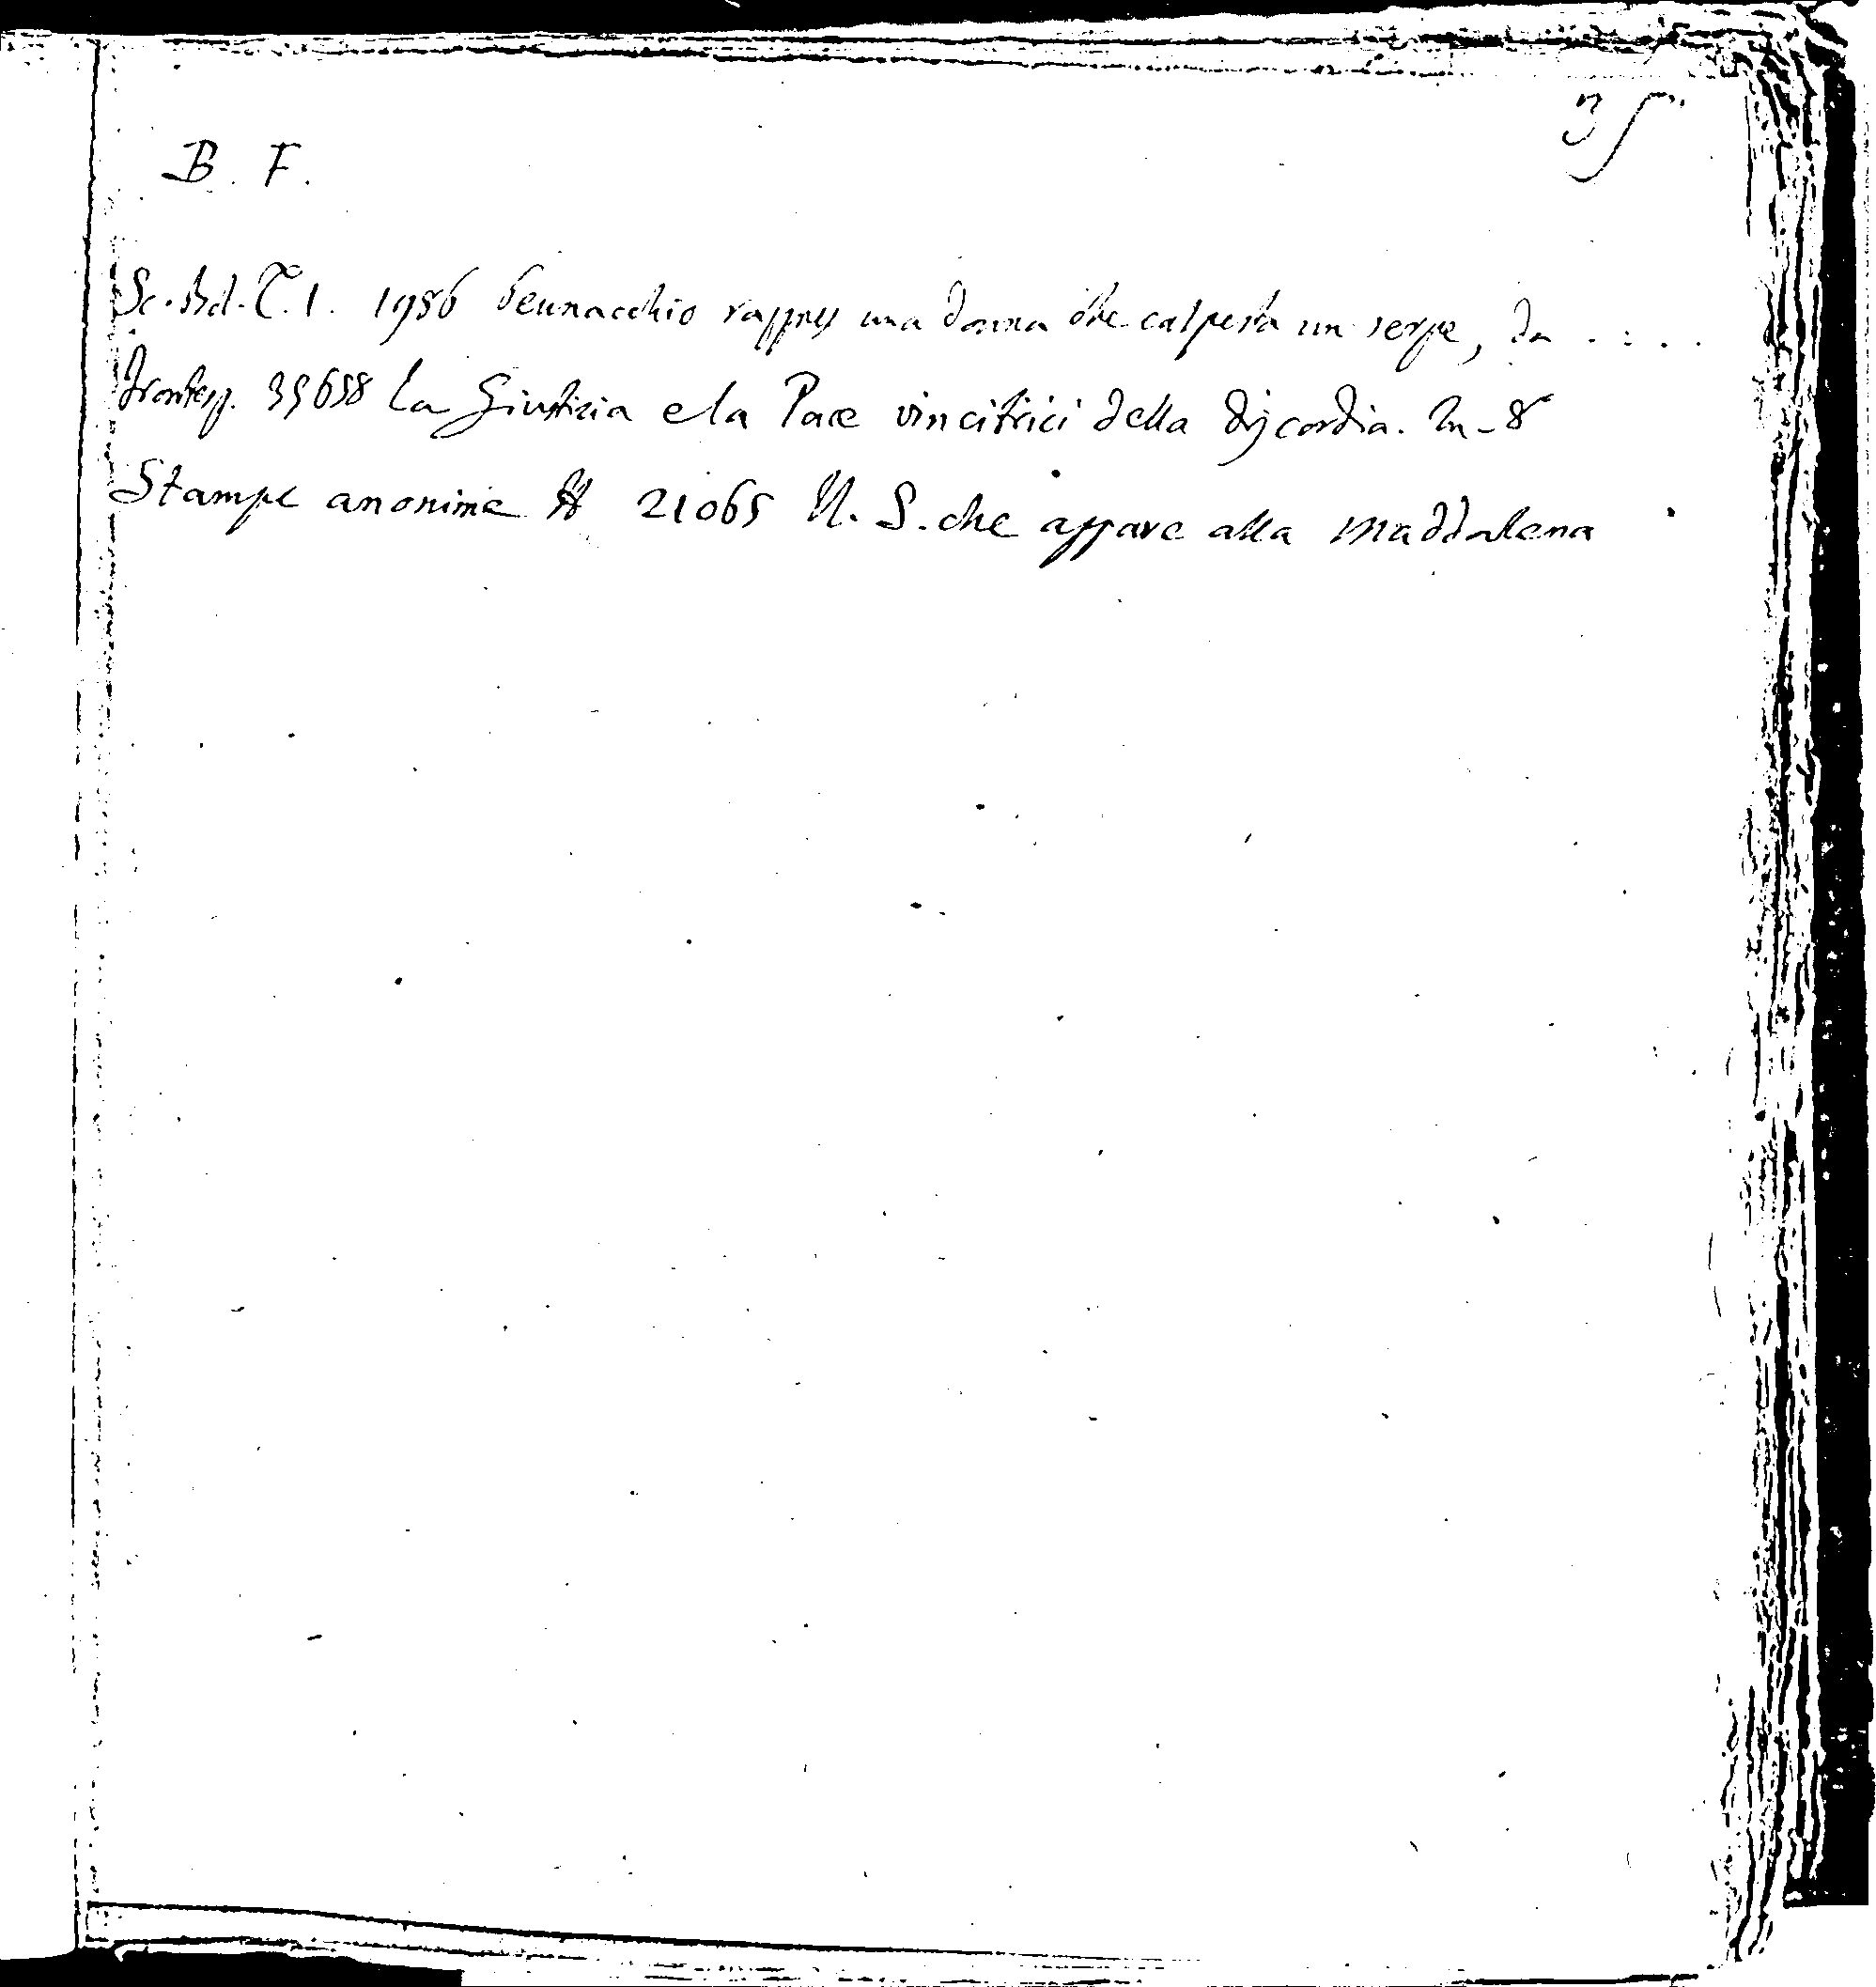 35
B. F.
Sc. Bol. T. 1. 1956 Pennacchio rappres una donna che calpesta un serpe, da . . . .
Frontesp. 35658 La Giustizia e la Pace vincitrici della discordia. In-8
Stampe anonime 21065 N. S. che appare alla Maddalena